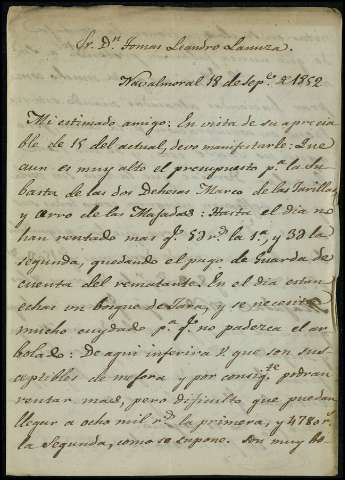 Sr. Dn. Tomas Leandro Lanuza.
Navalmoral 18 de Sepe. de 1852
Mi estimado amigo: En vista de su aprecia
ble de 15 del actual, devo manifestarle: Que
aun es muy alto el presupuesto pa. la su
basta de las dos dehesas Marco de las Parillas
y Cerro de las Majadas: Hasta el dia no
han rentado mas qe. 59 rs. la 1a., y 39 la
segunda, quedando el pago de Guarda de
cuenta del rematante. En el dia estan
echas un bosque de Jara, y se necesita
mucho cuydado pa. qe. no padezca el ar
bolado: De aqui inferira V. que son sus
ceptibles de mejora y por consigte. podran
rentar mas, pero dificulto que puedan
llegar a ocho mil rs. la primera, y 4780 rs.
la Segunda, como se supone. Son muy bo